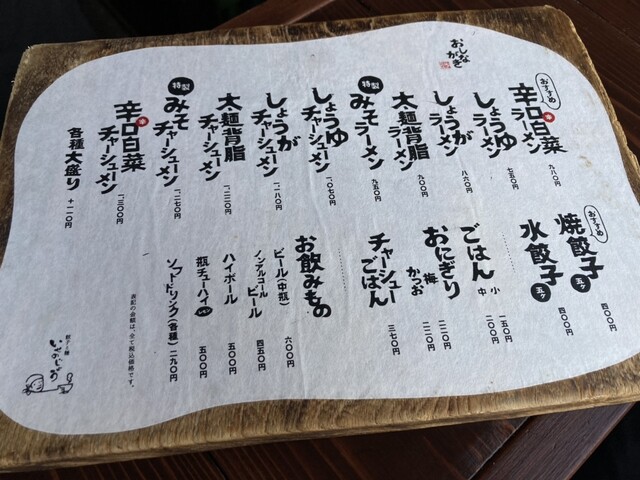 おしながき
おすすめ
辛口白菜ラーメン 九八〇
しょうゆラーメン 七五〇
しょうがラーメン 八六〇
太麺背脂ラーメン 九〇〇
特製
みそラーメン 九五〇
しょうゆチャーシューメン 一、〇七〇
しょうがチャーシューメン 一、一八〇
太麺背脂チャーシューメン 一、二二〇
特製
みそチャーシューメン 一、二七〇
辛口白菜チャーシューメン 一、三〇〇
各種大盛り +一一〇
おすすめ
焼餃子 五ヶ 四〇〇
水餃子 五ヶ 四〇〇
ごはん 小 一五〇
中 二〇〇
おにぎり 梅 二二〇
かつお 二二〇
チャーシューごはん 三七〇
お飲みもの
ビール(中瓶) 六〇〇
ノンアルコールビール 四五〇
ハイボール 五〇〇
瓶チューハイ 五〇〇
ソフトドリンク(各種) 二九〇
表記の金額は、全て税込価格です。